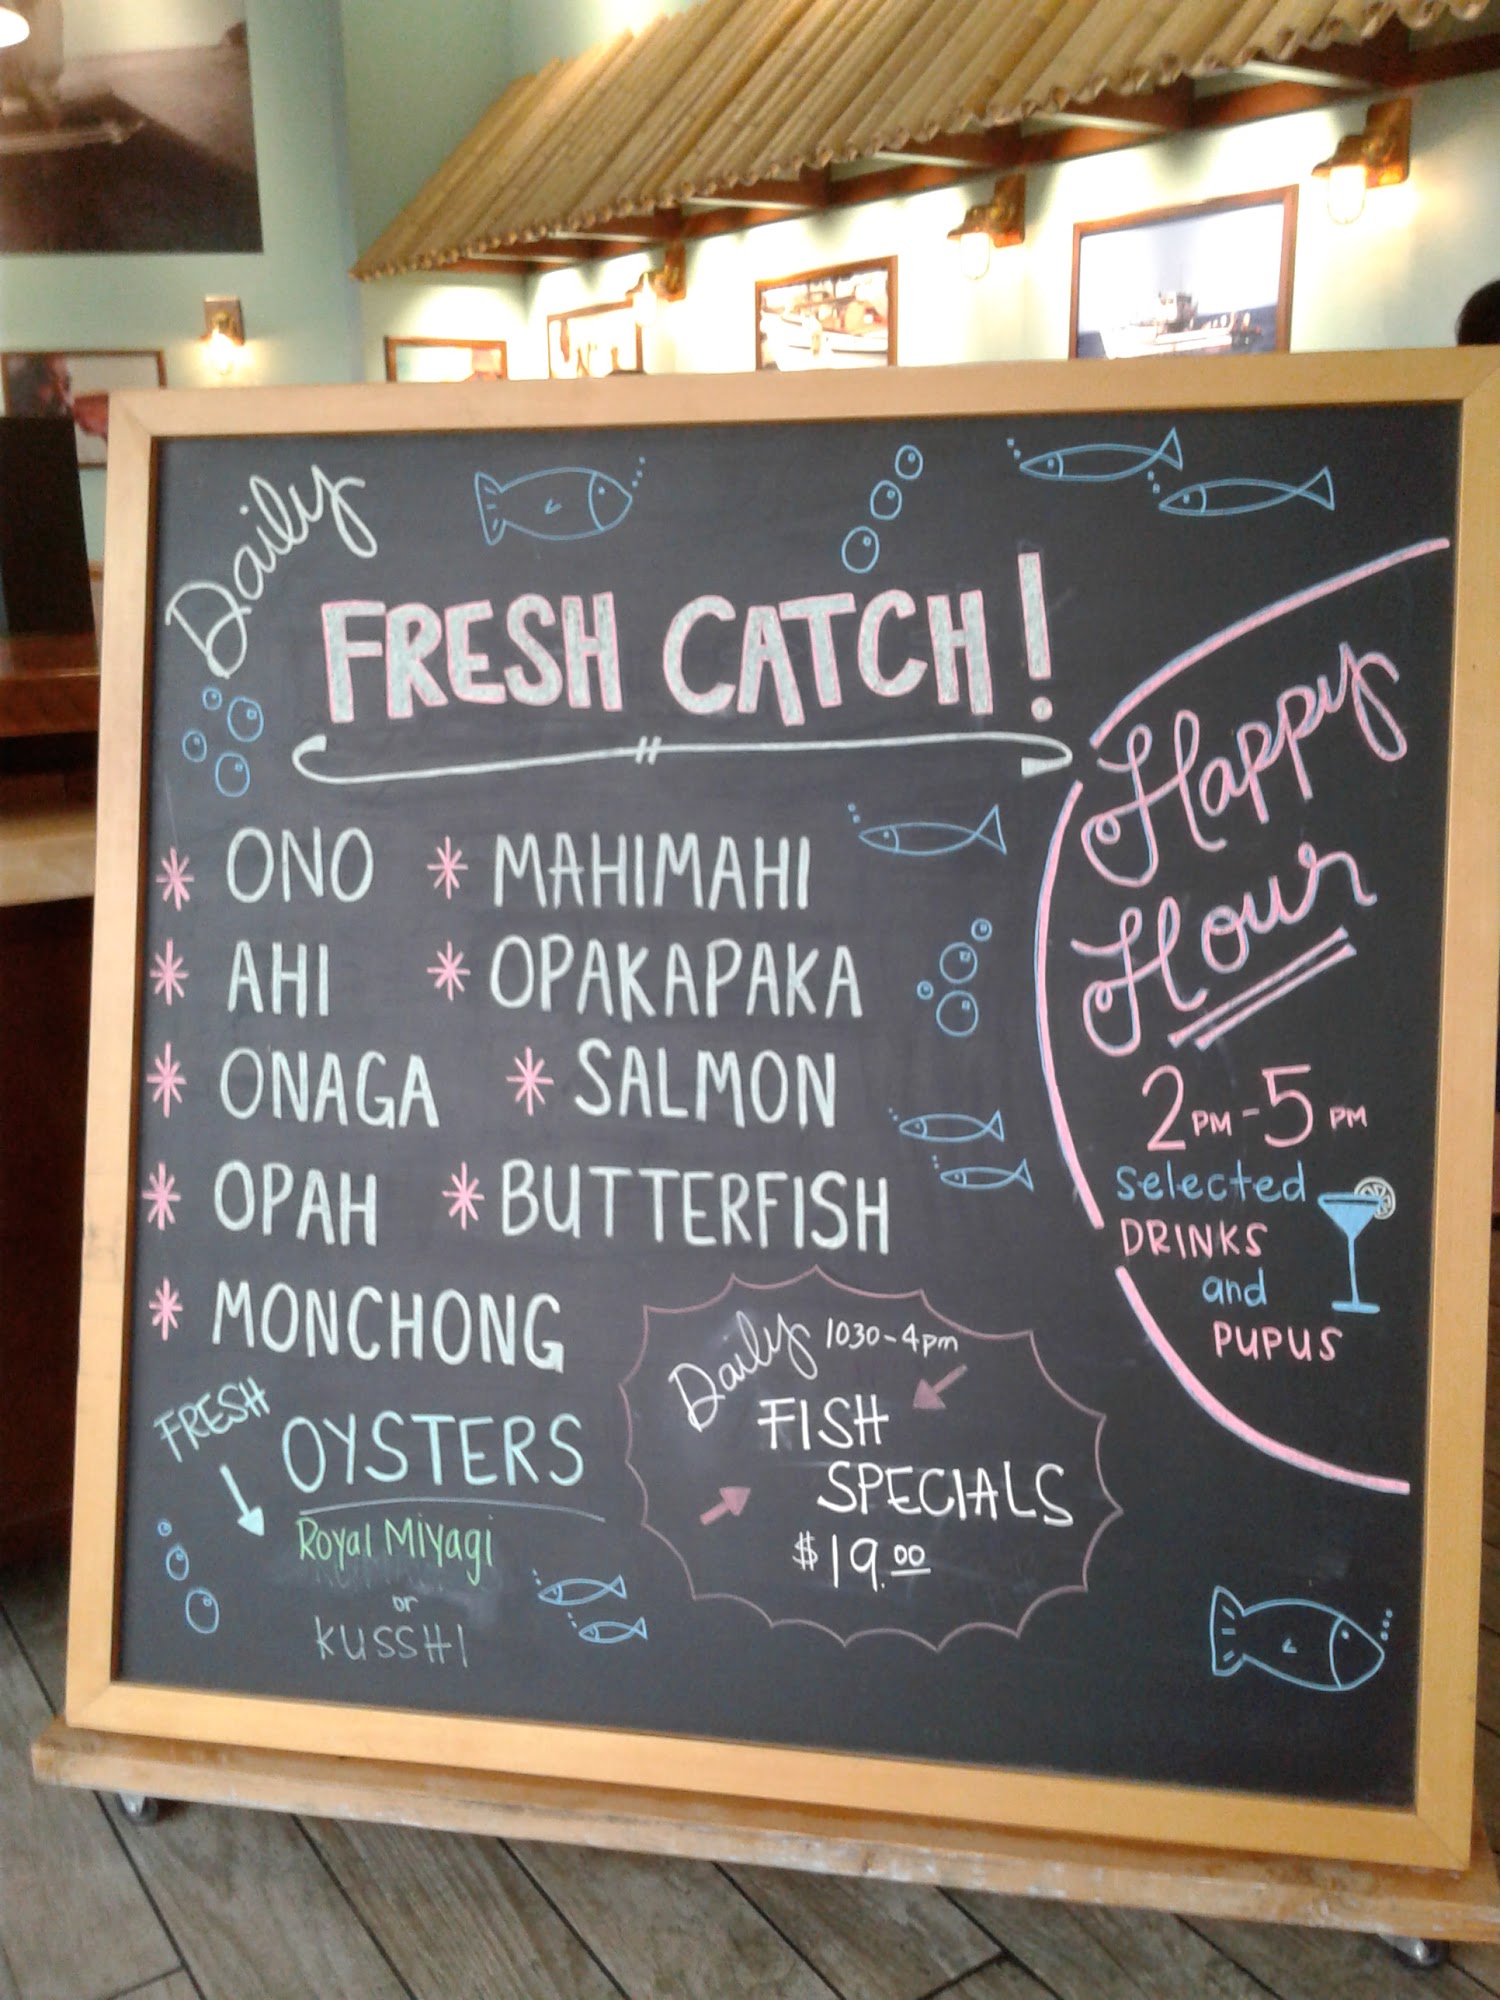 Daily
FRESH CATCH!
* ONO * MAHIMAHI
* AHI * OPAKAPAKA
* ONAGA * SALMON
* OPAH * BUTTERFISH
* MONCHONG
FRESH
OYSTERS
Royal Miyagi
or
KUSSHI
Daily 1030-4pm
FISH
SPECIALS
$19.00
Happy
Hour
2PM-5PM
selected
DRINKS
and
PUPUS